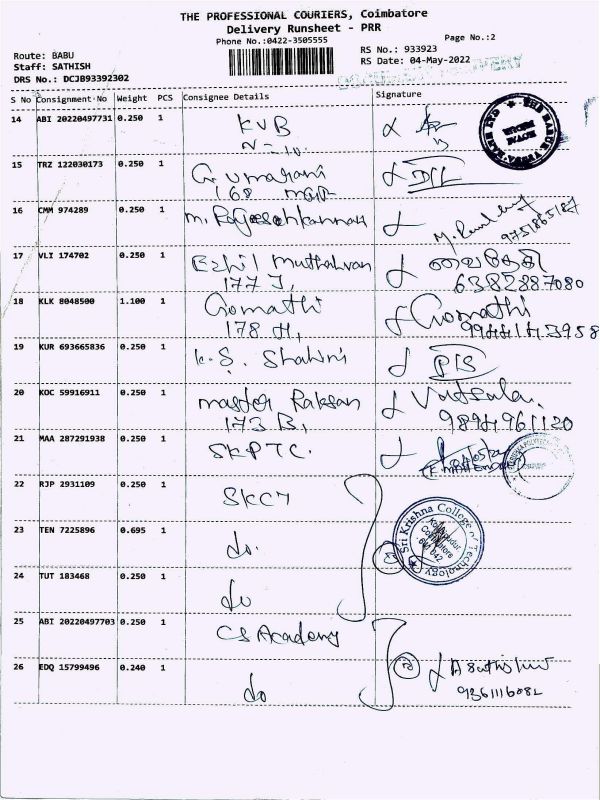 THE PROFESSIONAL COURIERS, Coimbatore
Delivery Runsheet - PRR
Phone No.:0422-3505555
Page No.:2
Route: BABU
RS No.: 933923
Staff: SATHISH
RS Date: 04-May-2022
DRS No.: DCJB93392302
S No Consignment No Weight PCS Consignee Details Signature
14 ABI 20220497731 0.250 1 KVB
15 TRZ 122030173 0.250 1
168
16 CMM 974289 0.250 1
17 VLI 174702 0.250 1 Ezhil Muthalvan வைதேகி
177 J, 6382887080
18 KLK 8048500 1.100 1 Gomathi Gomathi
178 H, 9944143958
19 KUR 693665836 0.250 1 K.S. Shalini
20 KOC 59916911 0.250 1 Master Raksan Vatsala.
173 B, 9894961120
21 MAA 287291938 0.250 1 SKPTC.
22 RJP 2931109 0.250 1 SKCT
Sri Krishna College of Technology
Kovaipudur
Coimbatore
641 042
23 TEN 7225896 0.695 1 do.
24 TUT 183468 0.250 1 do
25 ABI 20220497703 0.250 1 CS Academy
26 EDQ 15799496 0.240 1 do